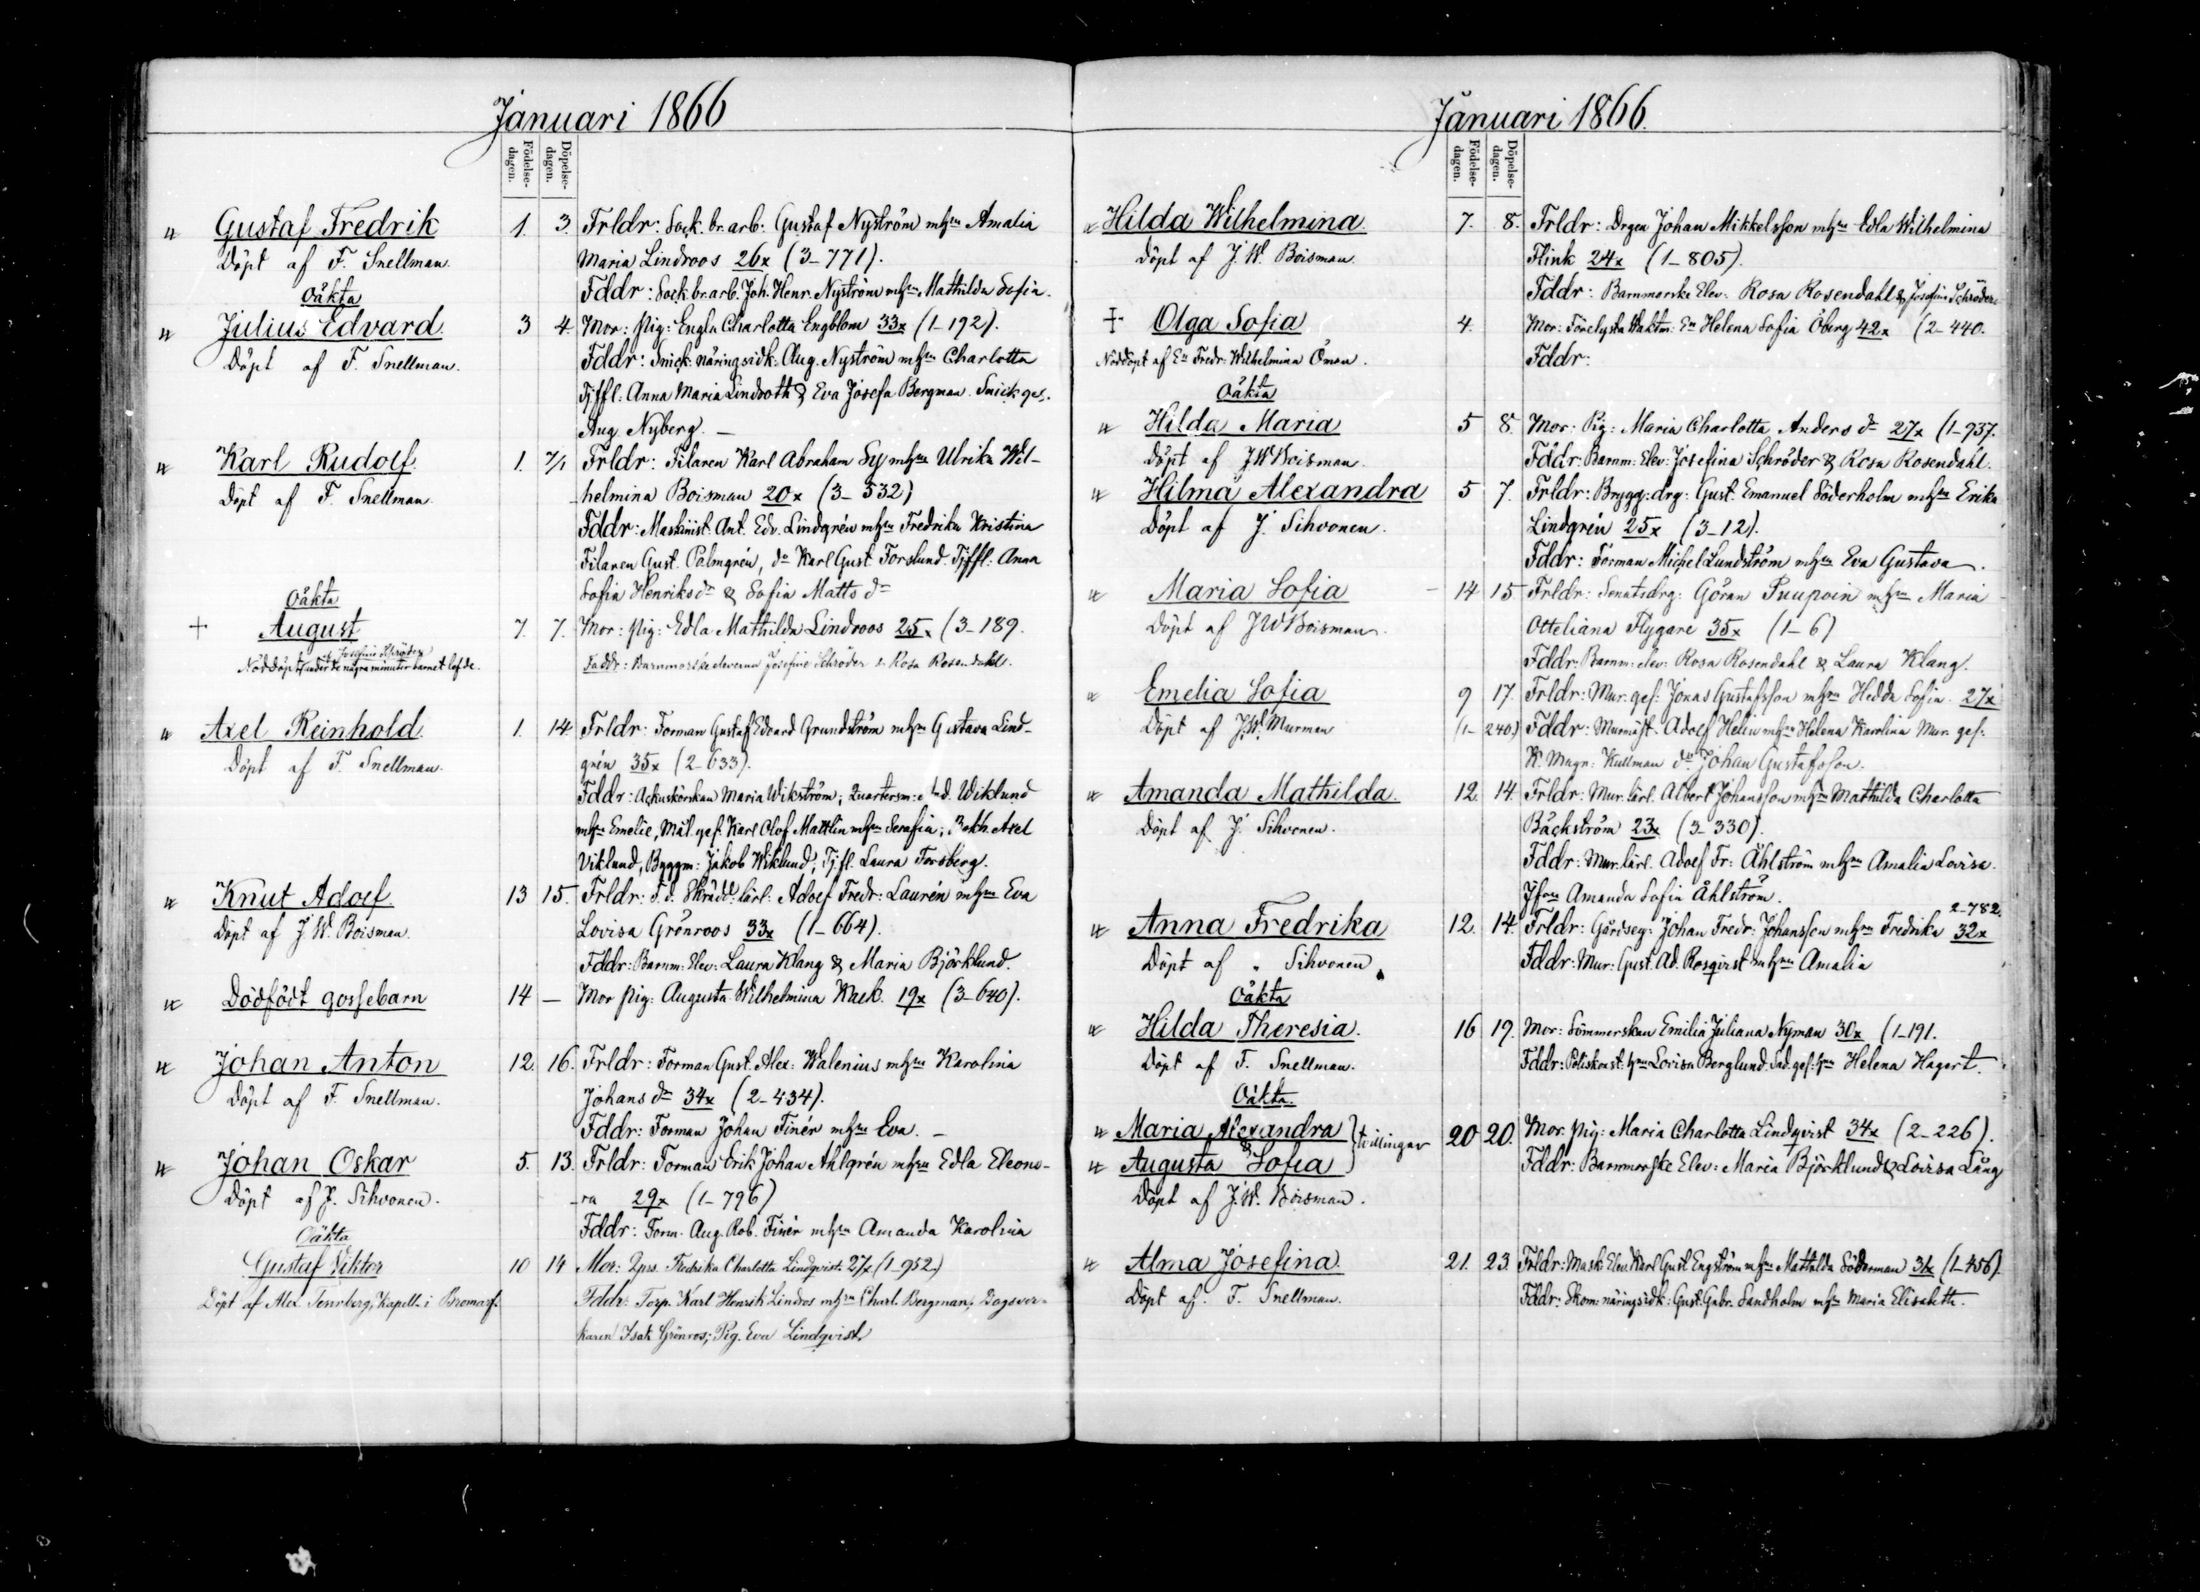 Januari 1866
Födelse-dagen.
Döpelse-dagen.
Gustaf Fredrik 1. 3. Frldr: Sock. br. arb: Gustaf Nyström mhu Amalia
Döpt af F. Snellman. Maria Lindroos 26x (3-771).
Fddr: Sock. br. arb. Joh. Henr. Nyström mhu Mathilda Sofia.
Oäkta
Julius Edvard 3 4. Mor: Pig: Engla Charlotta Engblom 33x (1-192).
Döpt af F. Snellman. Fddr: Snick. näringsidk: Aug. Nyström mhu Charlotta
Tjffl: Anna Maria Lindroth & Eva Josefa Bergman. Snickges.
Aug. Nyberg. —
Karl Rudolf. 1. 7/1 Frldr: Filaren Karl Abraham Sy mhu Ulrika Wil-
Döpt af F. Snellman. helmina Boisman 20x (3-532)
Fddr: Maskinist. Ant. Edv. Lindgrén mhu Fredrika Kristina
Filaren Gust. Palmgrén, do Karl Gust. Forslund. Tjffl: Anna
Sofia Henriksdr & Sofia Matts dr
Oäkta
August 7. 7. Mor: Pig: Edla Mathilda Lindroos 25x (3-189.
af Josefine Schröder
Nöddöpt under de några minuter barnet lefde. Faddr: Barnmorske eleverna Josefine Schröder & Rosa Rosendahl.
Axel Reinhold. 1. 14 Frldr: Forman Gustaf Edvard Grundström mhu Gustava Lind-
Döpt af F. Snellman. grén 35x (2-633).
Fddr: Maria Wikström; Wiklund
mhu Emelie, Mål. ges. Karl Olof Mattlin mhu Serafia; Bokh. Axel
Viklund, Byggm: Jakob Wiklund; Tjfl. Laura Forsberg.
Knut Adolf. 13 15. Frldr: F. d. Skrädd: lärl: Adolf Fredr: Laurén mhu Eva
Döpt af J. W. Boisman. Lovisa Grönroos 33x (1-664).
Fddr: Barnm: Elev: Laura Klang & Maria Björklund.
Dödfödt gossebarn 14 — Mor Pig: Augusta Wilhelmina Kack. 19x (3-640).
Johan Anton 12. 16. Frldr: Forman Gust. Alex: Walenius mhu Karolina
Döpt af F. Snellman. Johans dr 34x (2-434).
Fddr: Forman Johan Finér mhu Eva. —
Johan Oskar 5. 13. Frldr: Forman Erik Johan Ahlgrén mhu Edla Eleono-
Döpt af J. Sihvonen. -ra 29x (1-796)
Fddr: Form. Aug. Rob. Finér mhu Amanda Karolina
Oäkta
Gustaf Viktor 10 14 Mor: Fredrika Charlotta Lindqvist 27x (1-952.)
Döpt af Alex. Tennberg, Kapell. i Bromarf. Fddr: Torp. Karl Henrik Lindros mhu Charl. Bergman; Dagsver-
karen Isak Grönros; Pig. Eva Lindqvist.
Januari 1866.
Födelse-dagen.
Döpelse-dagen.
Hilda Wilhelmina. 7. 8. Frldr: Drgen Johan Mikkelsson mhu Edla Wilhelmina
Döpt af J. W. Boisman. Flink 24x (1-805).
Fddr: Barnmorske Elev: Rosa Rosendahl & Josefin Schröder.
Olga Sofia 4. Mor: Waktm: En Helena Sofia Öberg 42x (2-440.
Nöddöpt af En Fredr: Wilhelmina Öman. Fddr:
Oäkta
Hilda Maria 5 8. Mor: Pig: Maria Charlotta Anders dr 27x (1-937.
Döpt af J W Boisman. Fddr: Barnm: Elev: Josefina Schröder & Rosa Rosendahl.
Hilma Alexandra 5 7. Frldr: Brygg: drg: Gust. Emanuel Söderholm mhu Erika
Döpt af J. Sihvonen. Lindgrén 25x (3-12).
Fddr: Forman Michel Lundström mhu Eva Gustava.
Maria Sofia 14 15. Frldr: Senatsdrg: Göran mhu Maria
Döpt af J W Boisman. Otteliana Flygare 35x (1-6)
Fddr: Barnm: elev: Rosa Rosendahl & Laura Klang.
Emelia Sofia 9 17. Frldr: Mur. ges: Jonas Gustafsson mhu Hedda Sofia. 27x
Döpt af J. W. Murman (1-240) Fddr: Murmäst. Adolf Helin mhu Helena Karolina Mur. ges:
K. Magn: Kullman do Johan Gustafsson.
Amanda Mathilda. 12. 14. Frldr: Mur. lärl. Albert Johansson mhu Mathilda Charlotta
Döpt af J. Sihvonen. Bäckström 23x (3-330).
Fddr: Mur. lärl. Adolf Fr: Åhlström mhu Amalia Lovisa.
Jfru Amanda Sofia Åhlström.
2-782.
Anna Fredrika 12. 14. Frldr: Gårdseg: Johan Fredr: Johansson mhu Fredrika 32x
Döpt af " Sihvonen. Fddr: Mur: Gust. Ad. Rosqvist mhu Amalia
Oäkta
Hilda Theresia. 16 19. Mor: Sömmerskan Emilia Juliana Nyman 30x (1-191.
Döpt af F. Snellman. Fddr: Poliskonst. hu Lovisa Berglund. Sad. ges: hu Helena Hagert.
Oäkta.
Maria Alexandra } tvillingar 20 20. Mor. Pig: Maria Charlotta Lindqvist 34x (2-226).
&
Augusta Sofia Fddr: Barnmorske Elev: Maria Björklund & Lovisa Lång
Döpt af J. W. Boisman.
Alma Josefina. 21. 23. Frldr: Mask: Elev. Karl Gust. Engström mhu Mathilda Söderman 31x (1-456).
Döpt af. F. Snellman. Fddr: Skom: näringsidk: Gust. Gabr. Sandholm mhu Maria Elisabeth.